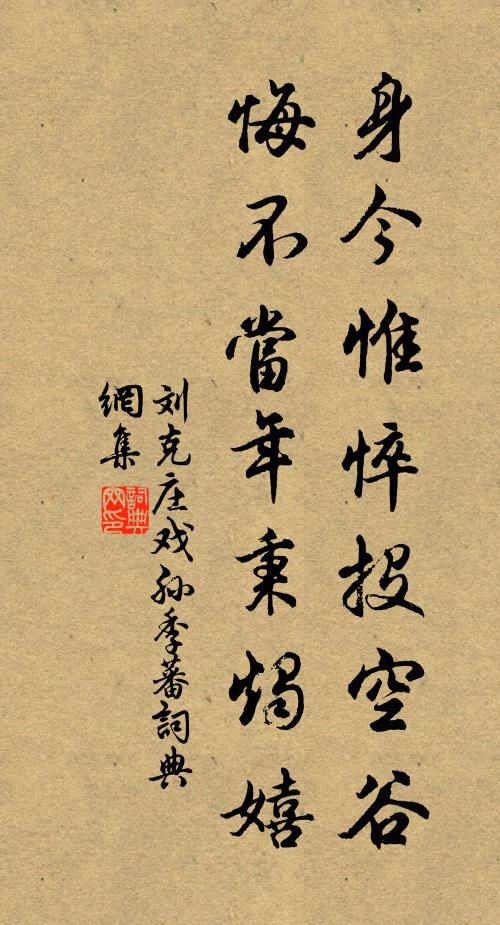 身今惟悴投空谷
悔不當年秉燭嬉
刘克庄戏孙季蕃詞典
網集
詞典
网印